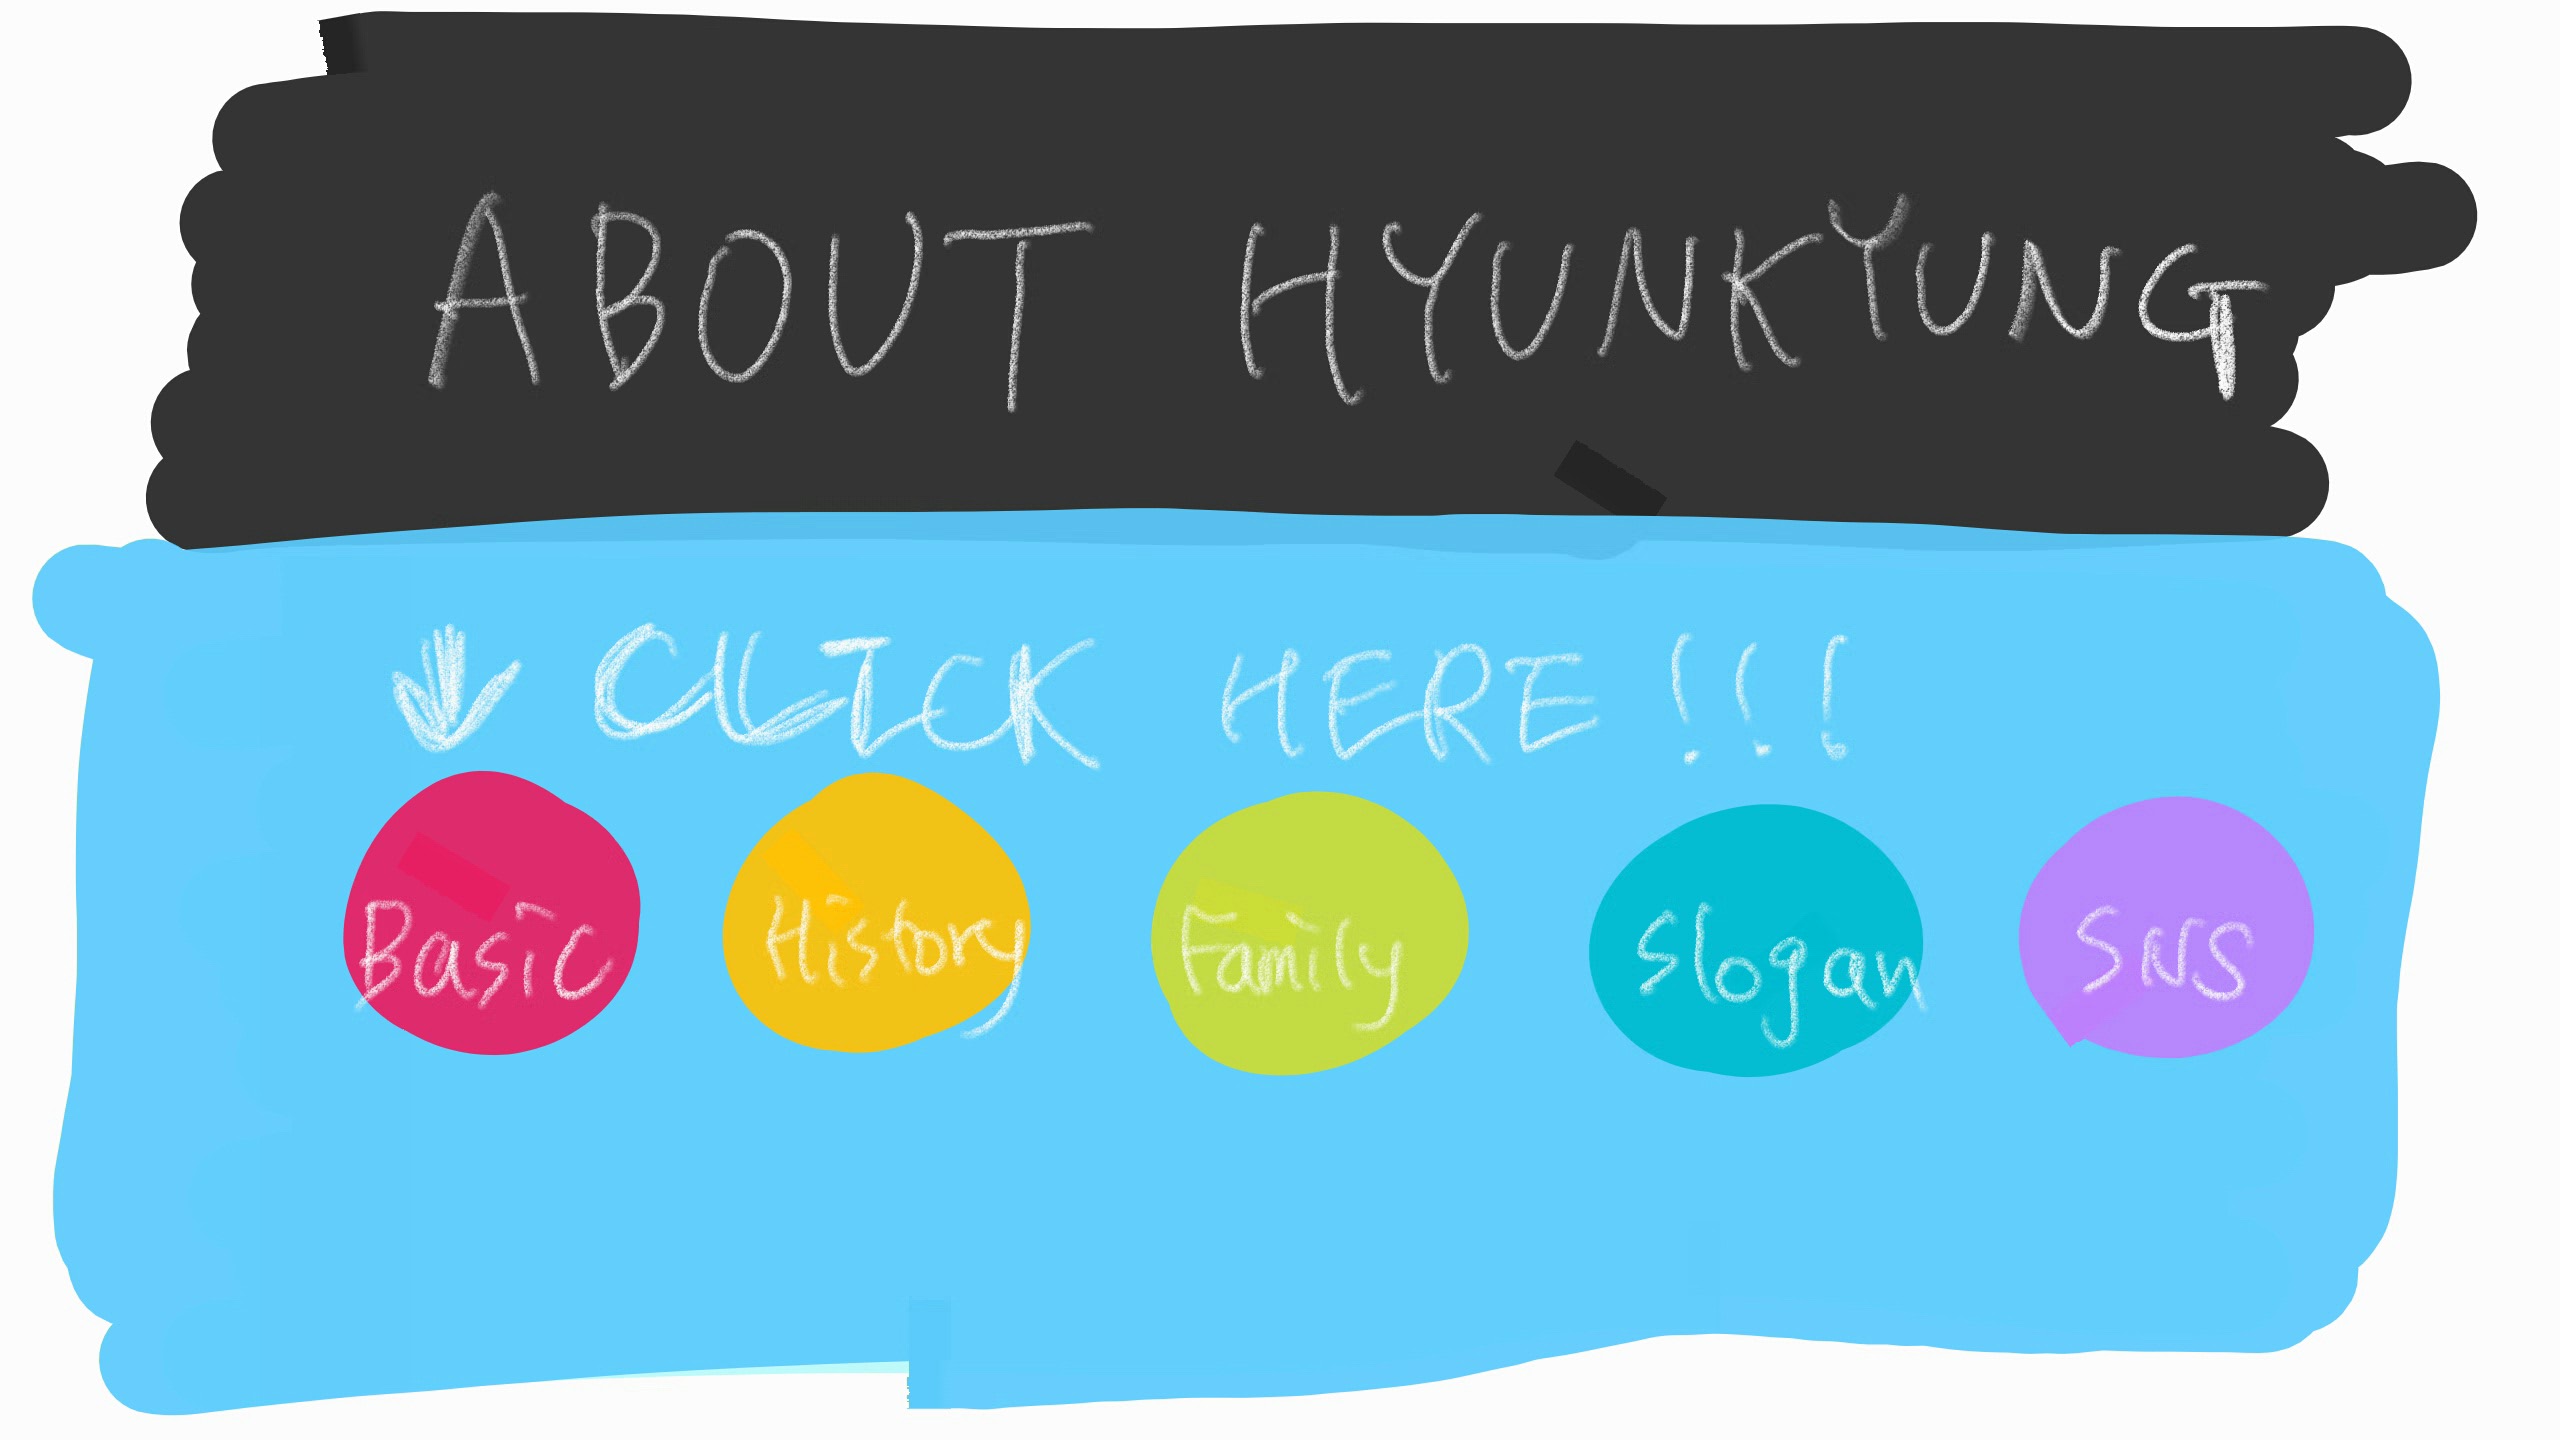 ABOUT HYUNKYUNG
↓ CLICK HERE !!!
Basic History Family Slogan SNS